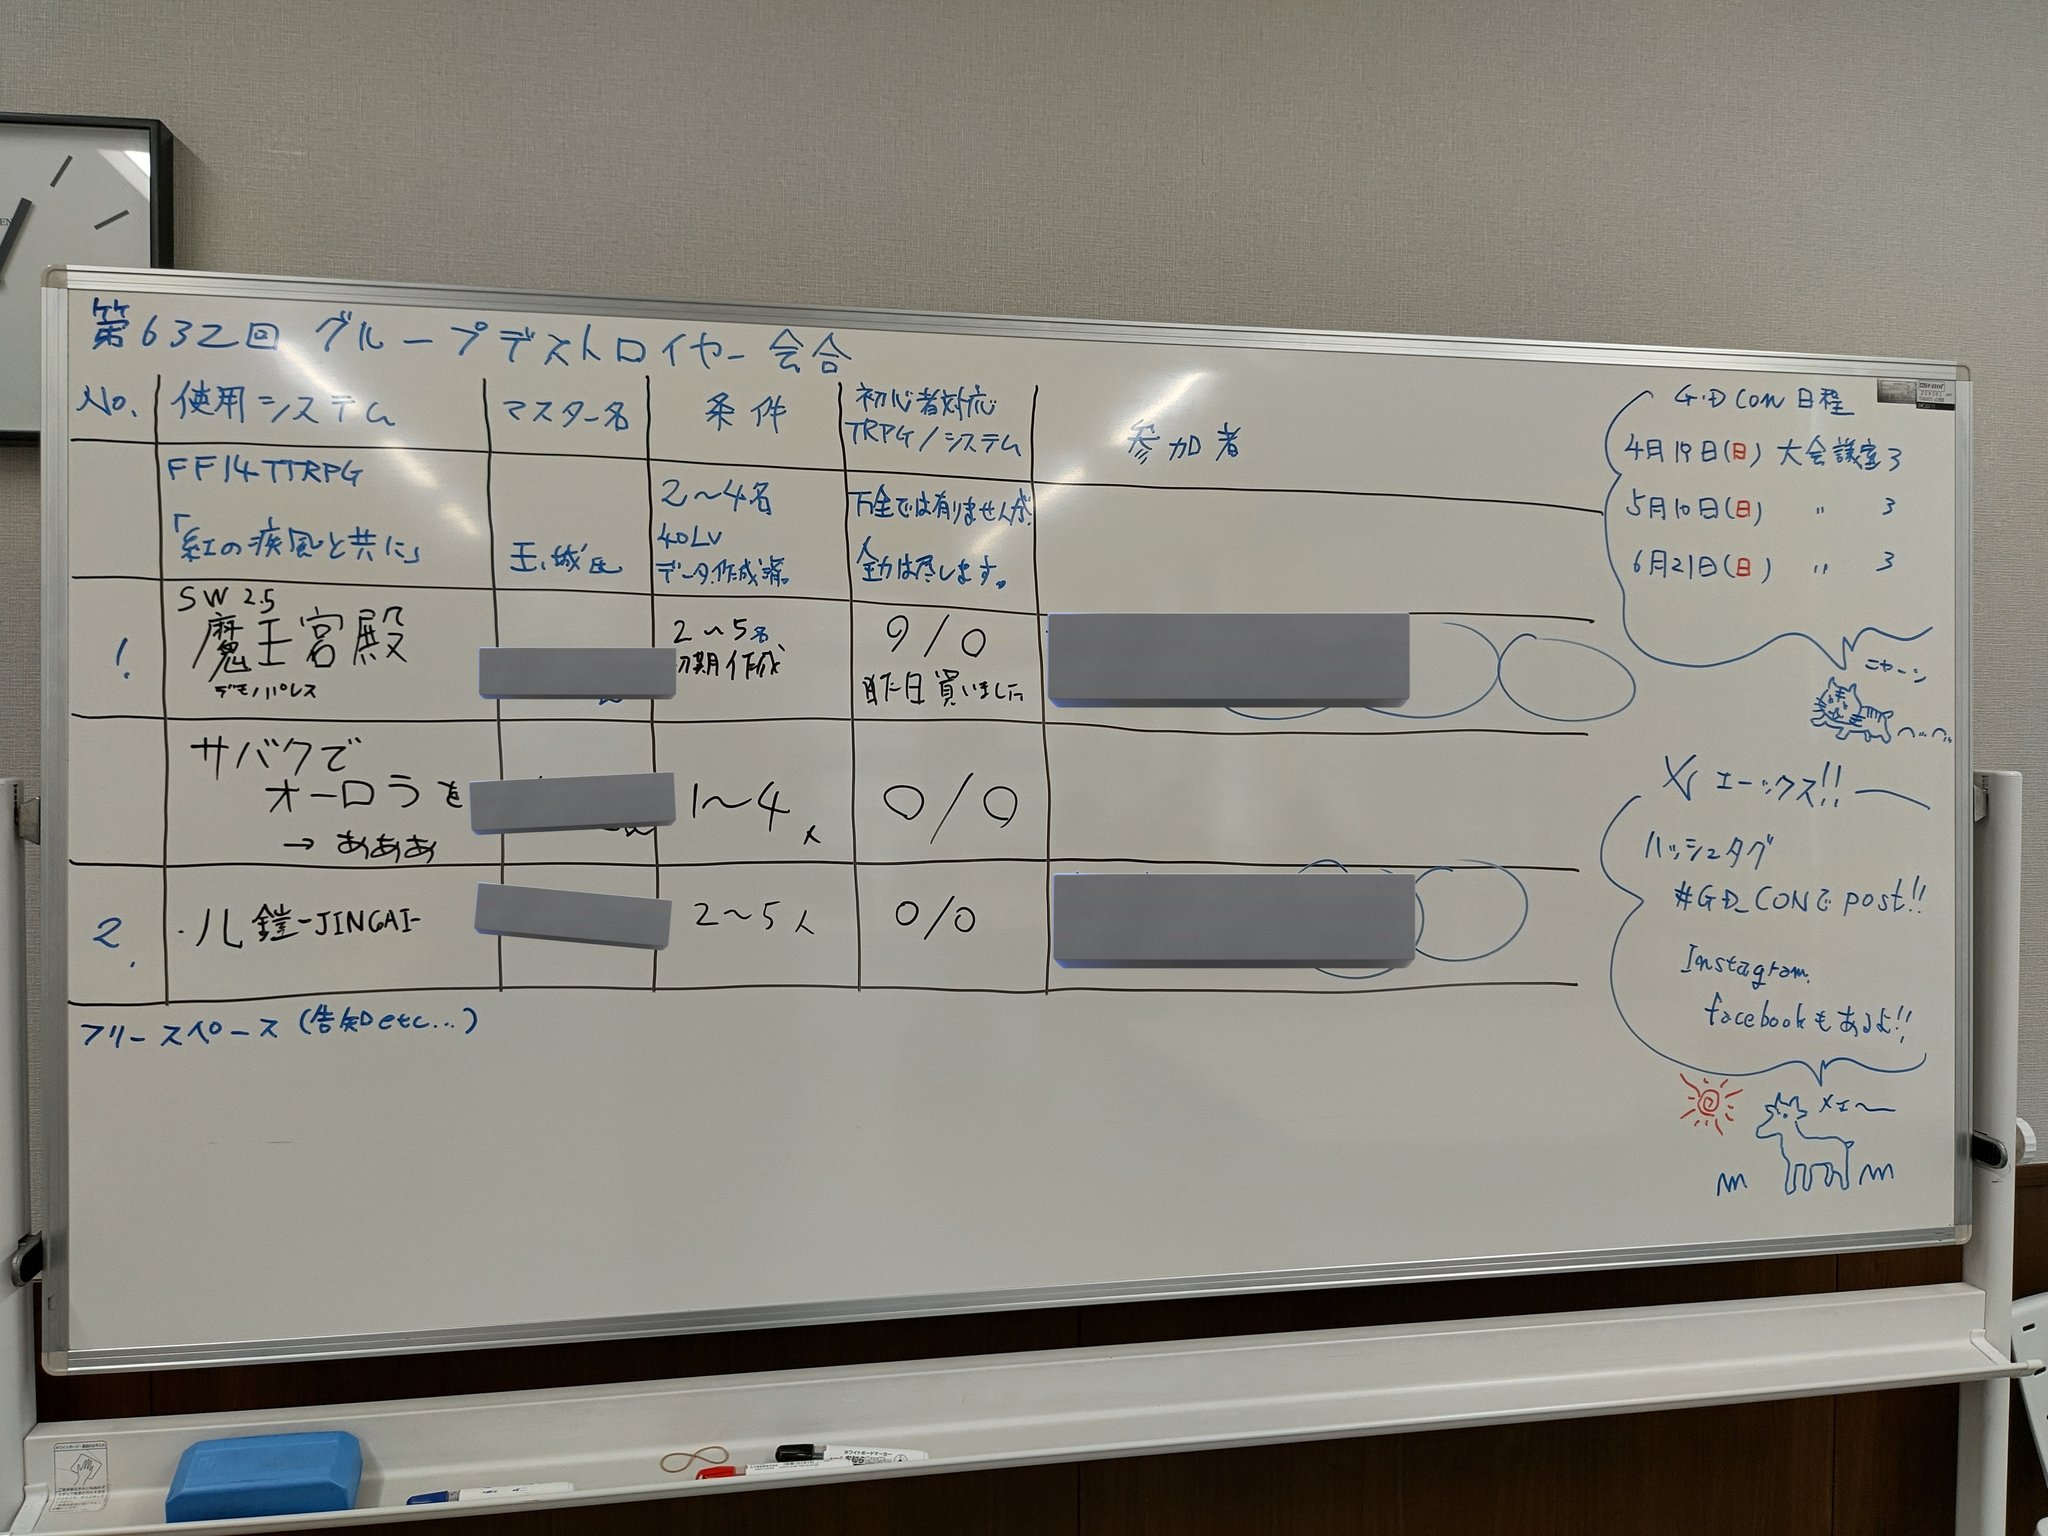 第632回 グループデストロイヤー会合
No. 使用システム マスター名 条件 初心者対応 TRPG/システム 参加者
FF14TTRPG
「紅の疾風と共に」
2~4名
40LV
データ作成済
万全では有りませんが
全力は尽します。
1.
SW 2.5
魔王宮殿
デモノパレス
2~5名
初期作成
/0
昨日買いました
サバクで
オーロラを
→ あああ
1~4人
0/0
2.
鎧-JINGAI-
2~5人
0/0
フリースペース(告知etc...)
G.D CON 日程
4月19日(日) 大会議室3
5月10日(日) 〃 3
6月21日(日) 〃 3
ニャーン
エーックス!!
ハッシュタグ
#GD_CONで post!!
Instagram.
facebookもあるよ!!
メェ~